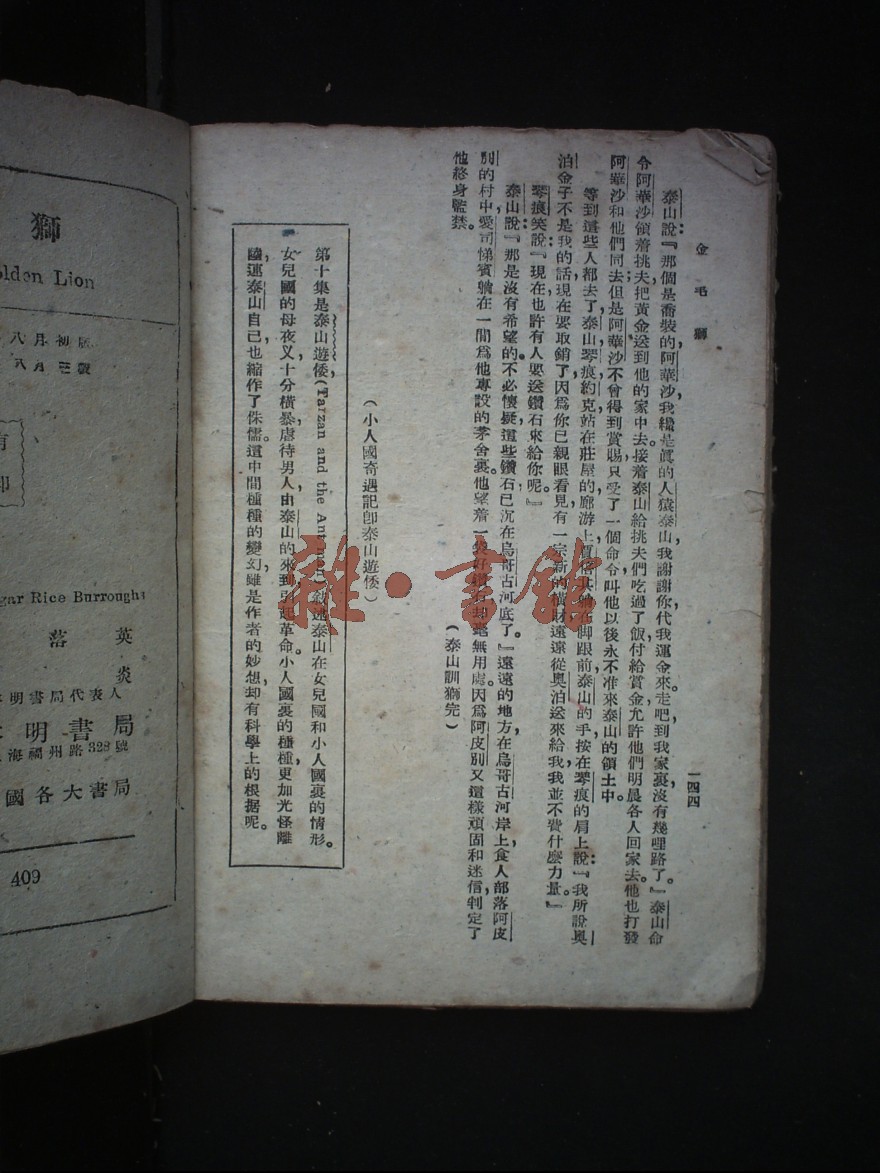 金毛獅
一四四
泰山說:『那個是喬裝的阿華沙,我纔是眞的人猿泰山,我謝謝你代我運金來。走吧,到我家裏沒有幾哩路了。』泰山命
令阿華沙領着挑夫,把黃金送到他的家中去。接着泰山給挑夫們吃過了飯,付給賞金,允許他們明晨各人回家去。他也打發
阿華沙和他們同去,但是阿華沙不曾得到賞賜,只受了一個命令,叫他以後永不准來泰山的領土中。
等到這些人都去了,泰山琴痕約克站在莊屋的廊游上,脚跟前,泰山的手按在琴痕的肩上,說:『我所說奧
泊金子不是我的話,現在要取銷了,因爲你已親眼看見有一宗新的橫財遠遠從奧泊送來給我,我並不費什麼力量。』
琴痕笑說:『現在也許有人要送鑽石來給你呢。』
泰山說:『那是沒有希望的。不必懷疑,這些鑽石已沉在烏哥古河底了。』遠遠的地方,在烏哥古河岸上,食人部落阿皮
別的村中,愛司悌賓躺在一間爲他專設的茅舍裏。他望着一袋好鑽石,却毫無用處,因爲阿皮別又這樣頑固和迷信,判定了
他終身監禁。
(泰山訓獅完)
(小人國奇遇記卽泰山遊倭)
第十集是泰山遊倭(Tarzan and the Antmen)敍述泰山在女兒國和小人國裏的情形。
女兒國的母夜叉十分橫暴,虐待男人,由泰山的來到,引起革命。小人國裏的種種,更加光怪離
陸,連泰山自己也縮作了侏儒。這中間種種的變幻,雖是作者的妙想,却有科學上的根據呢。
獅
lden Lion
八月初版
八月三版
有
印
gar Rice Burroughs
落英
炎
明書局代表人
明書局
海福州路328號
國各大書局
409
雜·書館